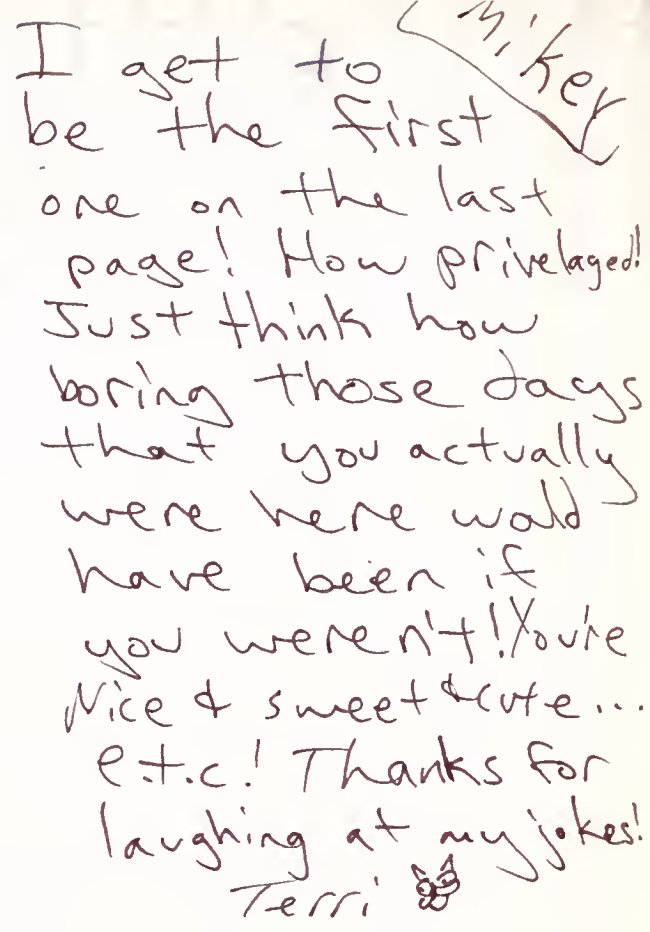 Mikey
I get to
be the first
one on the last
page! How privelaged!
Just think how
boring those days
that you actually
were here wold
have been if
you weren't! You're
Nice & sweet & cute...
e.t.c.! Thanks for
laughing at my jokes!
Terri